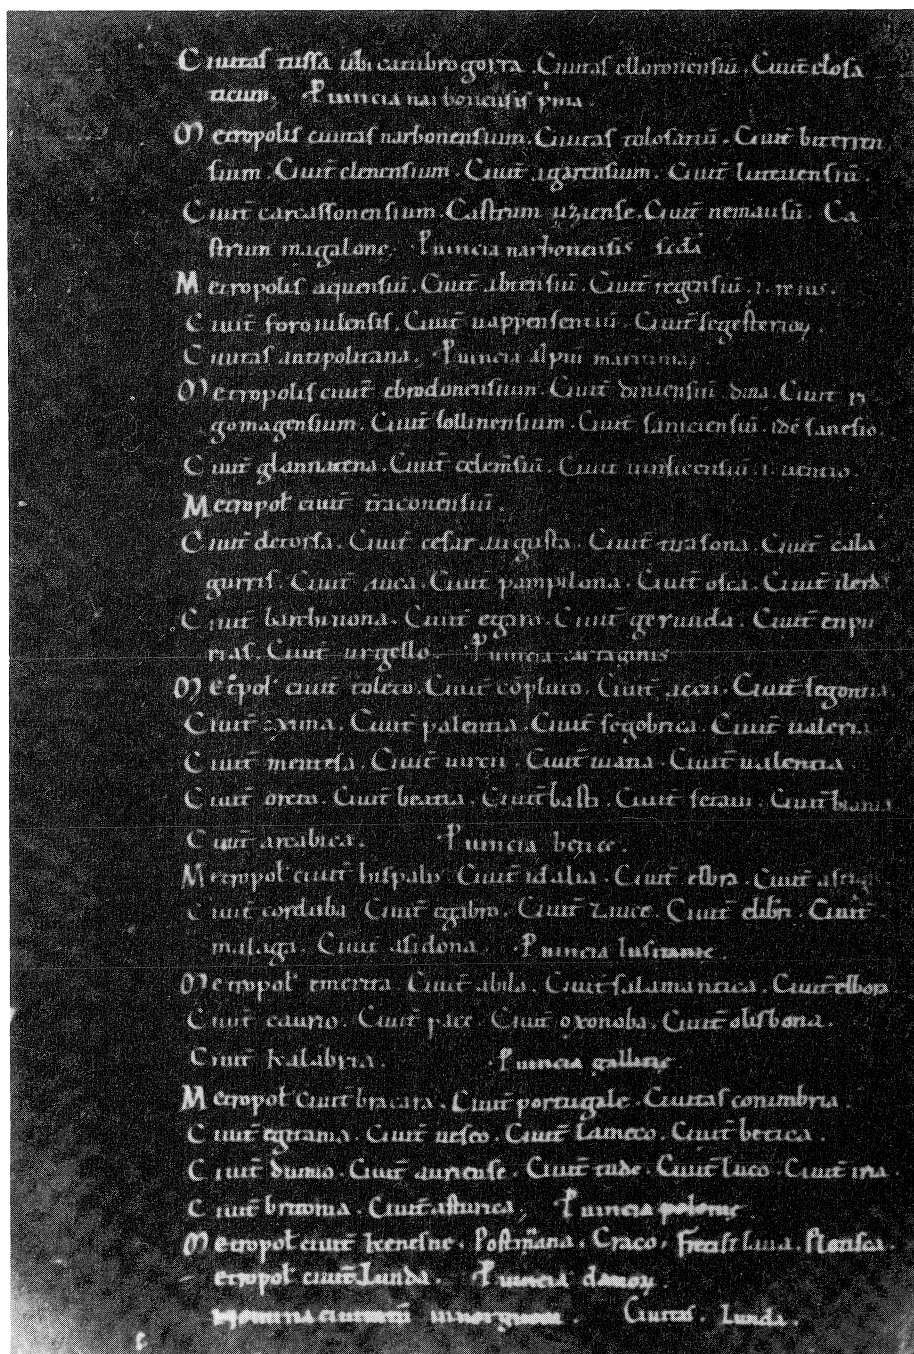 Ciuitas tussa ubi catubrogorra. Ciuitas elloronensiū. Ciuit̄ elosa
ticum. Puincia narbonensis pma.
Metropolis ciuitas narbonensium. Ciuitas tolosatiū. Ciuit̄ beterren
sium. Ciuit̄ elenensium. Ciuit̄ agatensium. Ciuit̄ luteuensiū.
Ciuit̄ carcassonensium. Castrum uziense. Ciuit̄ nemausiū. Ca
strum magalone. Puincia narbonensis scđa
Metropolis aquensiū. Ciuit̄ abtensiū. Ciuit̄ regensiū. i. reius.
Ciuit̄ foroiulensis. Ciuit̄ uappensentiū. Ciuit̄
Ciuitas antipolitana. Puincia alpiū
Metropolis ciuit̄ ebrodonensium. Ciuit̄ diniensiū dina. Ciuit̄ ri
gomagensium. Ciuit̄ sollinensium. Ciuit̄ saniciensiū. idē sanesio.
Ciuit̄ glannatena. Ciuit̄ celem̄siū. Ciuit̄ uinsicensiū. i. uencio.
Metropol̄ ciuit̄ t̄raconensiū.
Ciuit̄ detorsa. Ciuit̄ cesar augusta. Ciuit̄ tirasona. Ciuit̄ cala
gurris. Ciuit̄ auca. Ciuit̄ pampilona. Ciuit̄ osca. Ciuit̄ ilerda
Ciuit̄ barchinona. Ciuit̄ egara. Ciuit̄ gerunda. Ciuit̄ enpu
rias. Ciuit̄ urgello. Puincia cartaginis
Met̄pol̄ ciuit̄ toleto. Ciuit̄ cōpluto. Ciuit̄ accii. Ciuit̄ segontia.
Ciuit̄ Ciuit̄ palentia. Ciuit̄ segobrica. Ciuit̄ ualeria
Ciuit̄ mentesa. Ciuit̄ Ciuit̄ Ciuit̄ ualentia.
Ciuit̄ Ciuit̄ beatia. Ciuit̄ basti. Ciuit̄ Ciuit̄
Ciuit̄ arcabica. Puincia betice.
Metropol̄ ciuit̄ hispalis Ciuit̄ idalia. Ciuit̄ elbra. Ciuit̄ astigi
Ciuit̄ corduba Ciuit̄ egabro. Ciuit̄ Ciuit̄ elibri. Ciuit̄.
malaga. Ciuit̄ asidona. Puincia lusitanie.
Metropol̄ emerita. Ciuit̄ abila. Ciuit̄ salamantica. Ciuit̄ elbora
Ciuit̄ caurio. Ciuit̄ pace. Ciuit̄ oxonoba. Ciuit̄ olisbona.
Ciuit̄ kalabria. Puincia gallicie
Metropol̄ ciuit̄ bracara. Ciuit̄ portugale. Ciuitas conimbria.
Ciuit̄ egitania. Ciuit̄ ueseo. Ciuit̄ Lameco. Ciuit̄ betica.
Ciuit̄ dumio. Ciuit̄ auriense. Ciuit̄ tude. Ciuit̄ Luco. Ciuit̄ iria.
Ciuit̄ britonia. Ciuit̄ asturica. Puincia polonie
Metropol̄ ciuit̄ kenesne. Craco.
etropol̄ ciuit̄ Lunda. Puincia danoꝝ.
Ciuitas. Lunda.